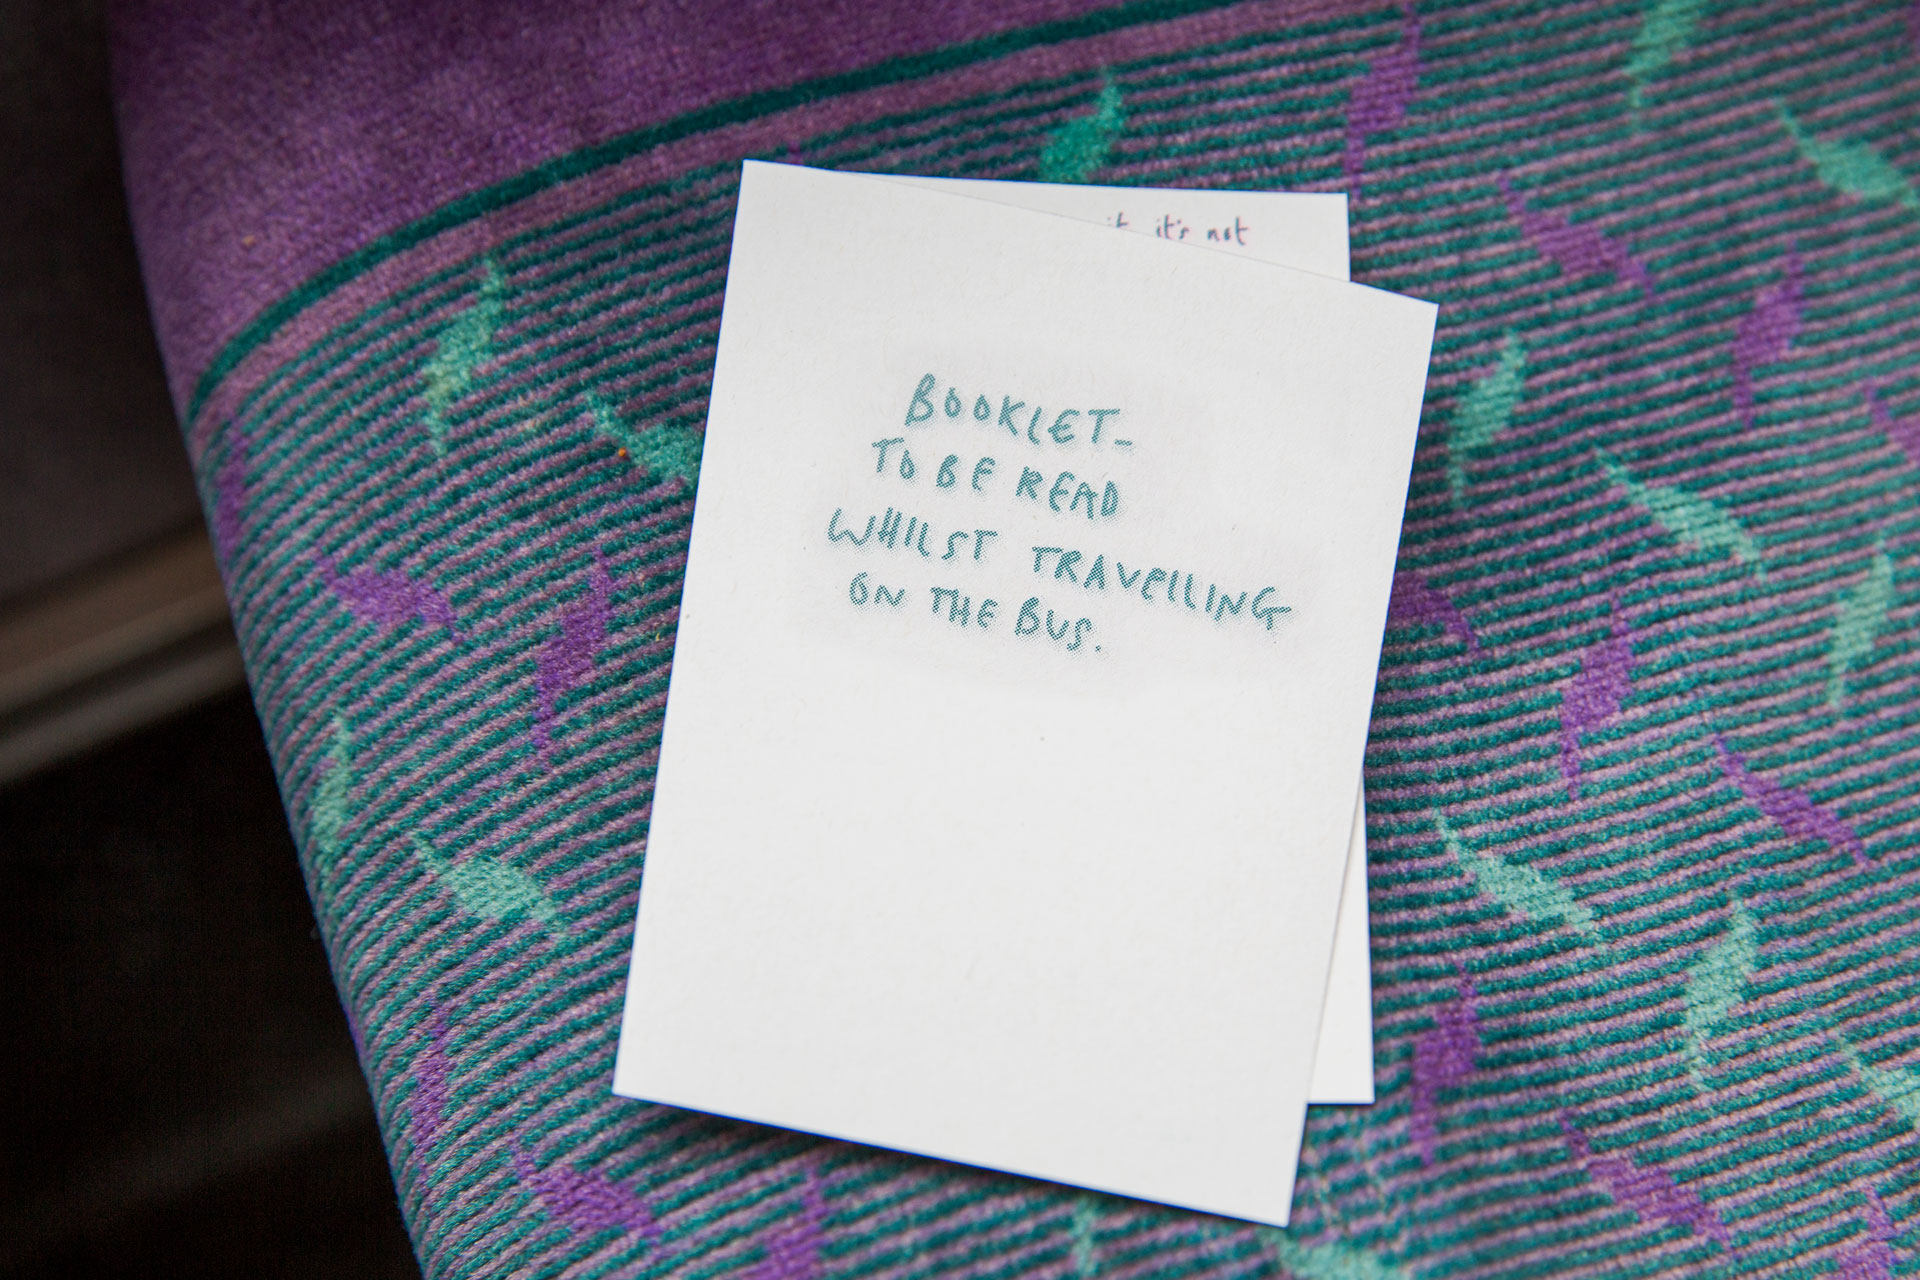 it's not
BOOKLET-
TO BE READ
WHILST TRAVELLING
ON THE BUS.